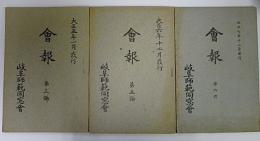 大正五年一月發行
會報
第三號
岐阜師範同窓會
大正六年十二月發行
會報
第五號
岐阜師範同窓會
會報
第六號
岐阜師範同窓會